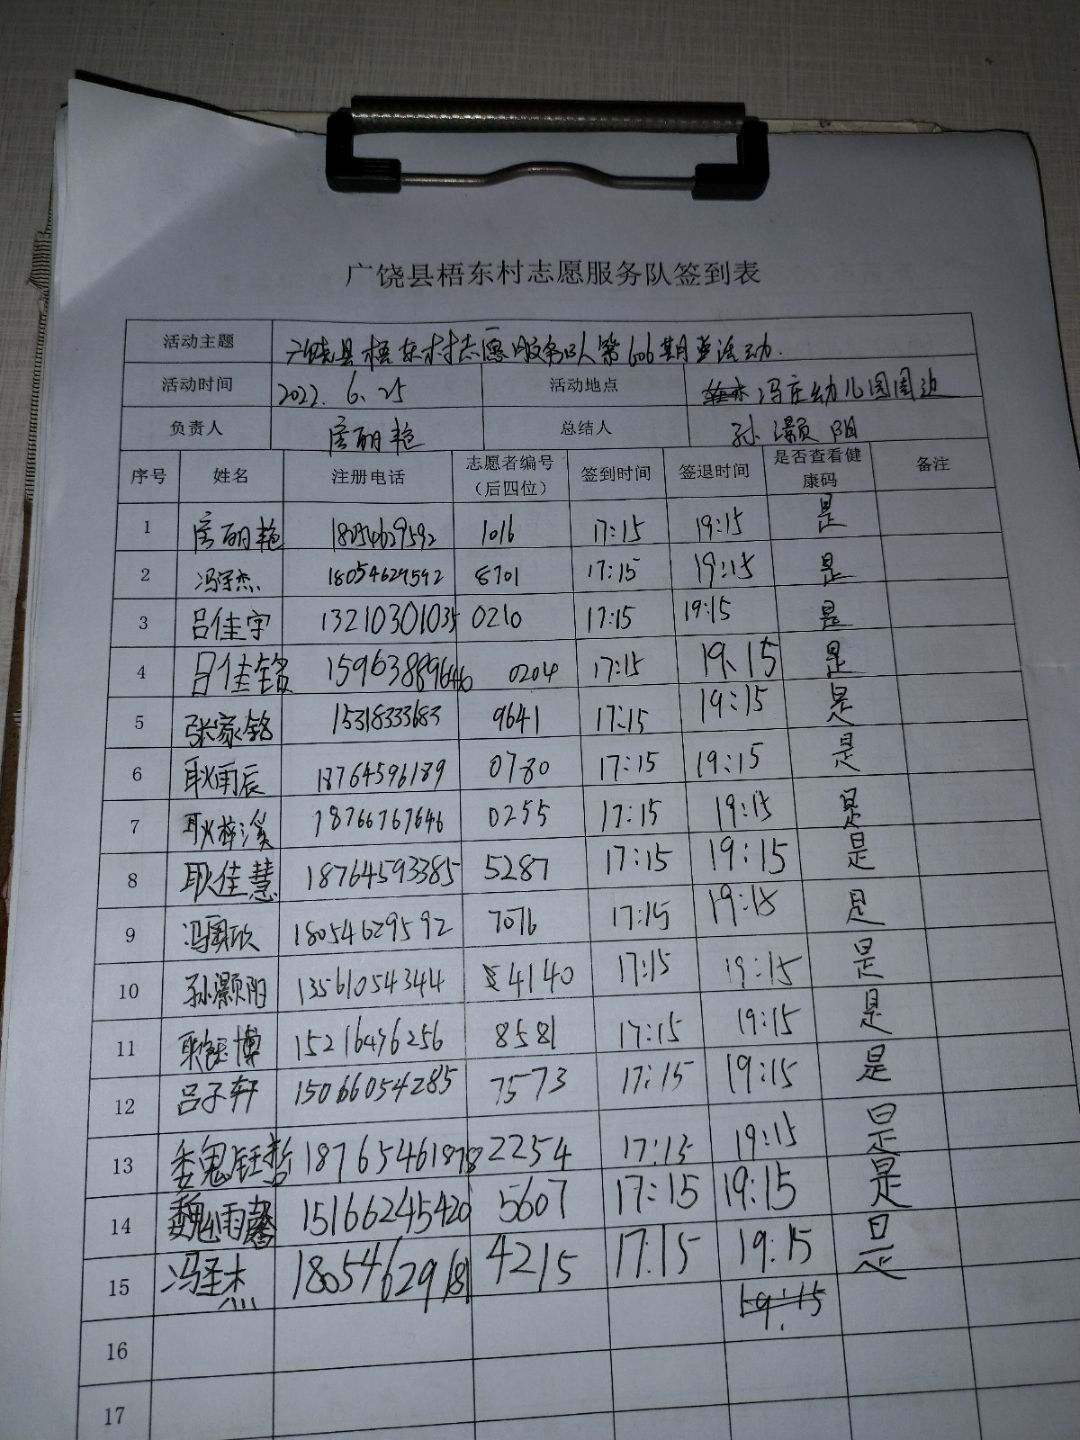 广饶县梧东村志愿服务队签到表
活动主题 广饶县梧东村志愿服务队第606期 活动.
活动时间 2022. 6. 25 活动地点 冯庄幼儿园周边
负责人 房丽艳 总结人 孙灏阳
序号 姓名 注册电话 志愿者编号（后四位） 签到时间 签退时间 是否查看健康码 备注
1 房丽艳 18054629592 1016 17:15 19:15 是
2 冯圣杰 18054629592 8701 17:15 19:15 是
3 吕佳宇 13210301035 0210 17:15 19:15 是
4 吕佳铭 0204 17:15 19:15 是
5 张家铭 15318333683 9641 17:15 19:15 是
6 耿雨辰 18764596189 0780 17:15 19:15 是
7 耿梓溪 18766767646 0255 17:15 19:15 是
8 耿佳慧 18764593385 5287 17:15 19:15 是
9 18054629592 7076 17:15 19:15 是
10 孙灏阳 13561054344 4140 17:15 19:15 是
11 15216476256 8581 17:15 19:15 是
12 吕子轩 15066054285 7573 17:15 19:15 是
13 魏钰哲 18765461878 2254 17:15 19:15 是
14 魏雨馨 15166245420 5607 17:15 19:15 是
15 冯圣杰 18054629181 4215 17:15 19:15 是
19:15
16
17